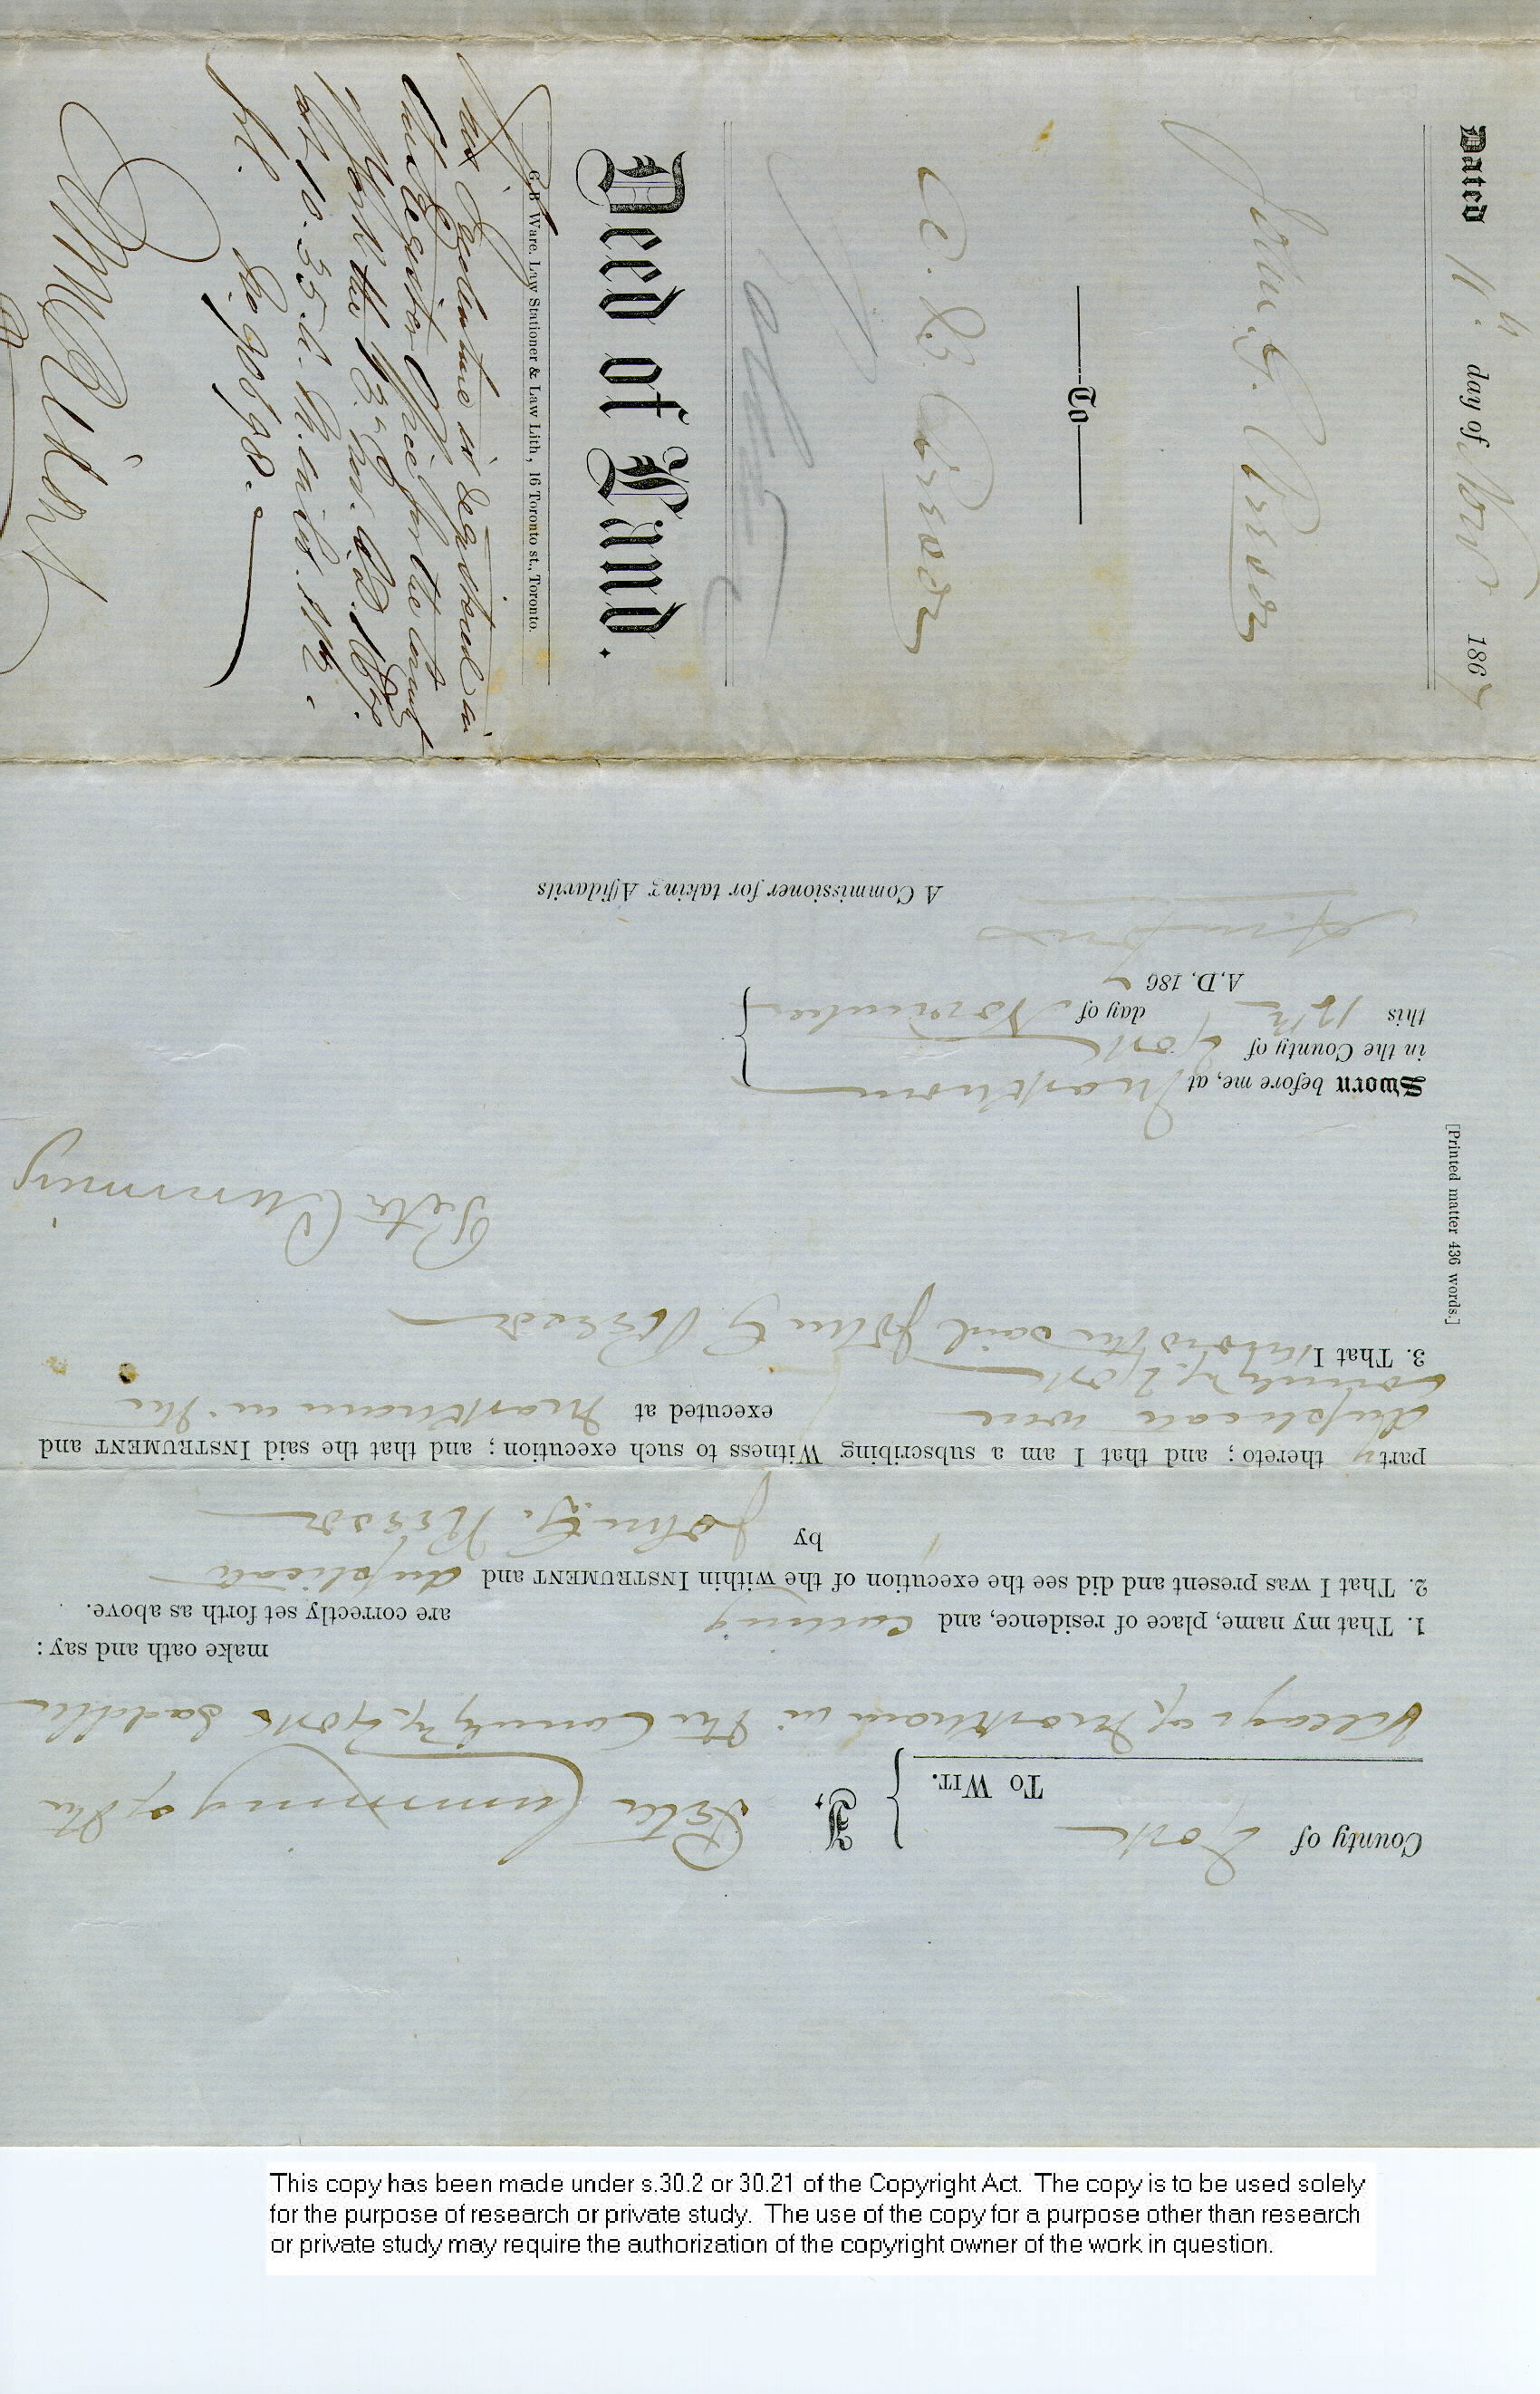 Dated 11th day of Novr 1867
John G. Reesor
To
Deed of Land.
G. B. Ware, Law Stationer & Law Lith., 16 Toronto st., Toronto.
Indenture is Registered in
the Register Office for the County
of York the 13th
at 10.35.
No. 90898.
County of York
To Wit.
I, Peter Cumming of the
Village of Markham in the County of York Saddler
make oath and say:
1. That my name, place of residence, and calling are correctly set forth as above.
2. That I was present and did see the execution of the within INSTRUMENT and duplicate
by John G. Reesor
party thereto; and that I am a subscribing Witness to such execution; and that the said INSTRUMENT and
duplicate were executed at Markham in the
County of York
3. That I know the said John G Reesor
Peter Cumming
[Printed matter 436 words.]
Sworn before me, at Markham
in the County of York
this 12th day of November
A.D. 186
A Commissioner for taking Affidavits
This copy has been made under s.30.2 or 30.21 of the Copyright Act. The copy is to be used solely
for the purpose of research or private study. The use of the copy for a purpose other than research
or private study may require the authorization of the copyright owner of the work in question.